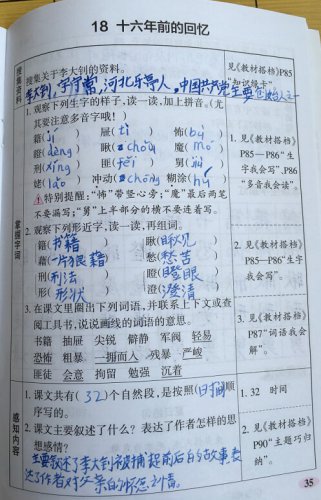 18 十六年前的回忆
搜集资料
搜集关于李大钊的资料。
李大钊，字守常，河北乐亭人，中国共产党主要创始人之一
见《教材搭档》P85
“知识链卡”
掌握字词
1. 观察下列生字的样子，读一读，加上拼音。（尤
其要注意多音字哦！）
籍(jí) 屉(tì) 怖(bù)
瞪(dèng) 瞅(chǒu) 魔(mó)
刑(xíng) 匪(fěi) 舅(jiù)
姥(lǎo) 冲动(chōng) 糊涂(hú)
特别提醒：“怖”带竖心旁；“魔”最后两笔
不要漏写；“舅”上半部分的横不要连着写。
1. 见《教材搭档》
P85—P86“生
字我会写”、P86
“多音我会读”。
2. 观察下列形近字，读一读，再组词。
籍(书籍) 瞅(瞅见)
藉(一片狼藉) 愁(愁苦)
刑(刑法) 瞪(瞪眼)
形(形状) 澄(澄清)
2. 见《教材搭档》
P85—P86“生字
我会写”。
3. 在课文里圈出下列词语，并联系上下文或查
阅工具书，说说画线的词语的意思。
书籍 抽屉 尖锐 僻静 军阀 轻易
恐怖 粗暴 一拥而入 残暴 严峻
匪徒 会意 拘留 勉强 沉着
3. 见《教材搭档》
P87“词语我会
解”。
感知内容
1. 课文共有(32)个自然段，是按照(时间)顺
序写的。
1. 32 时间
2. 课文主要叙述了什么？表达了作者怎样的思
想感情？
主要叙述了李大钊被捕前后的故事表
达了作者对父亲的怀念
2. 见《教材搭档》
P90“主题巧归
纳”。
35